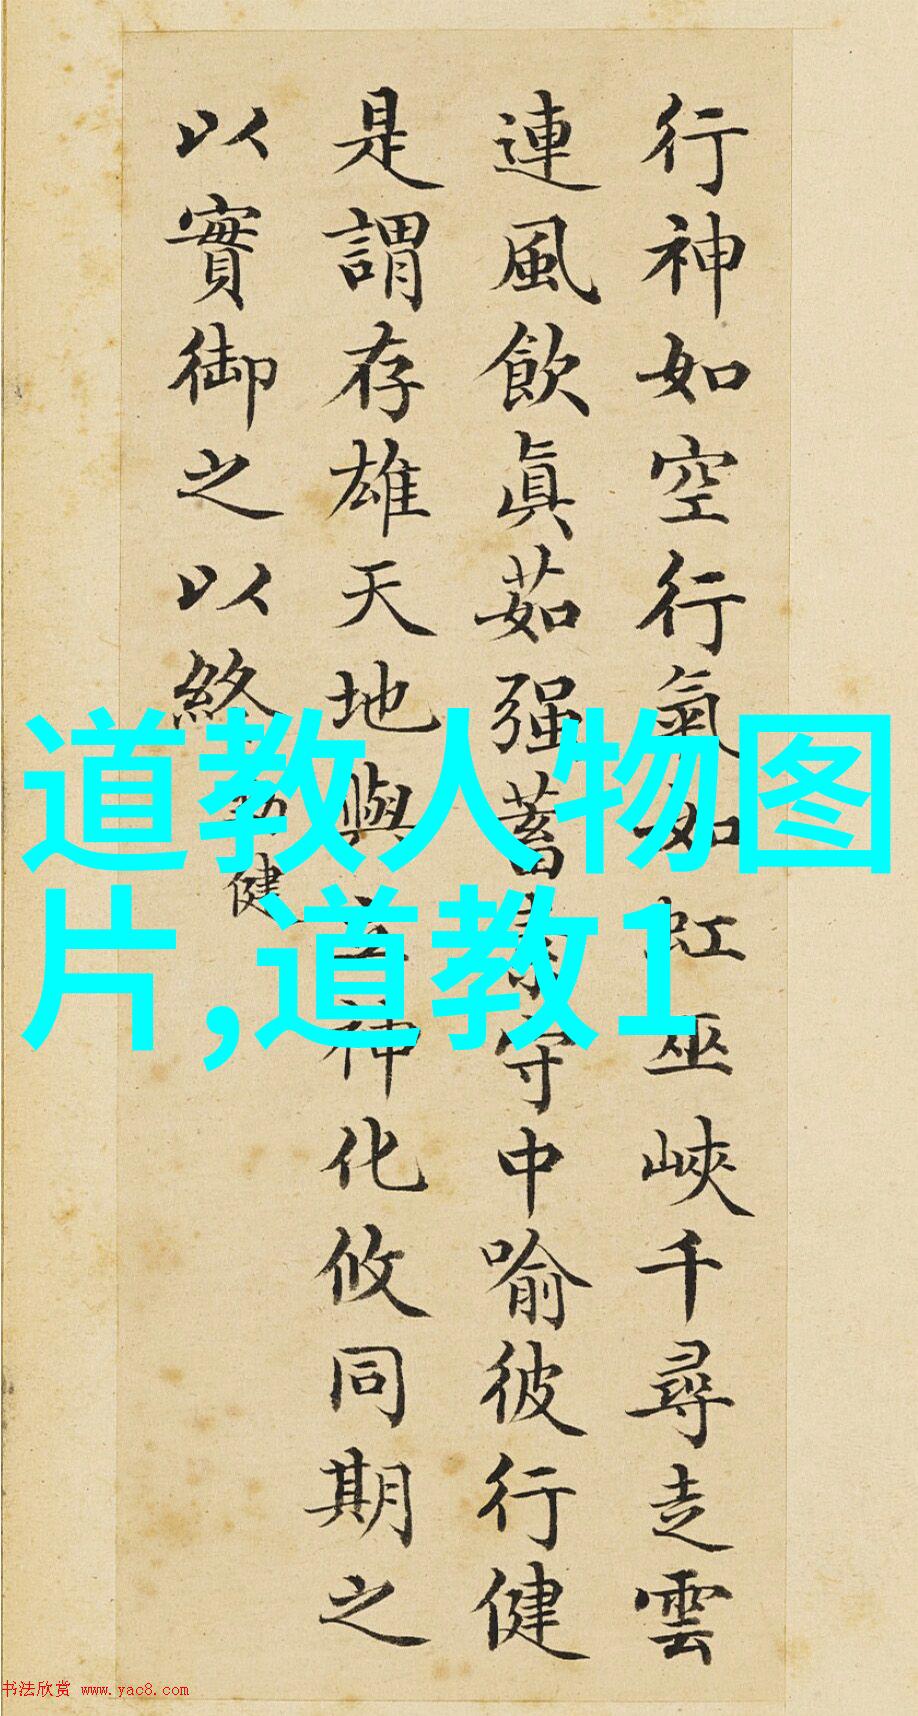 行神如空行氣如虹巫峽千尋走雲
連風飲眞茹强蓄素守中喻彼行健
是謂存雄天地與立神化攸同期之
以實御之以終
勁健
道教人物图
片,道教1
书法欣赏 www.yac8.com